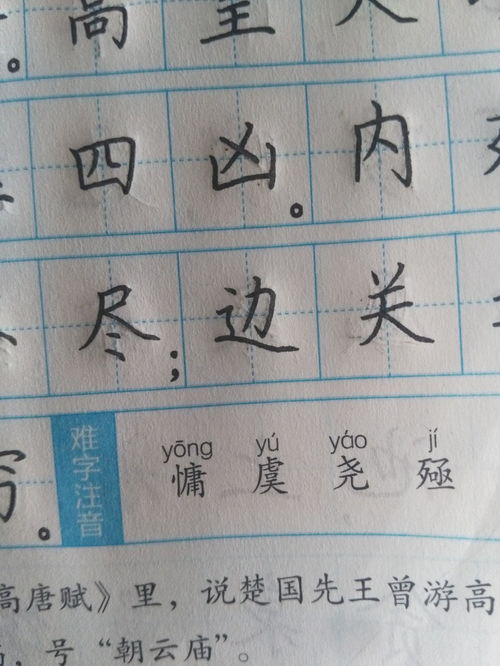 。高至人
四凶。内
尽；边关
穷。难字注音 yōng yú yáo jí
慵 虞 尧 殛
高唐赋》里，说楚国先王曾游高
，号“朝云庙”。